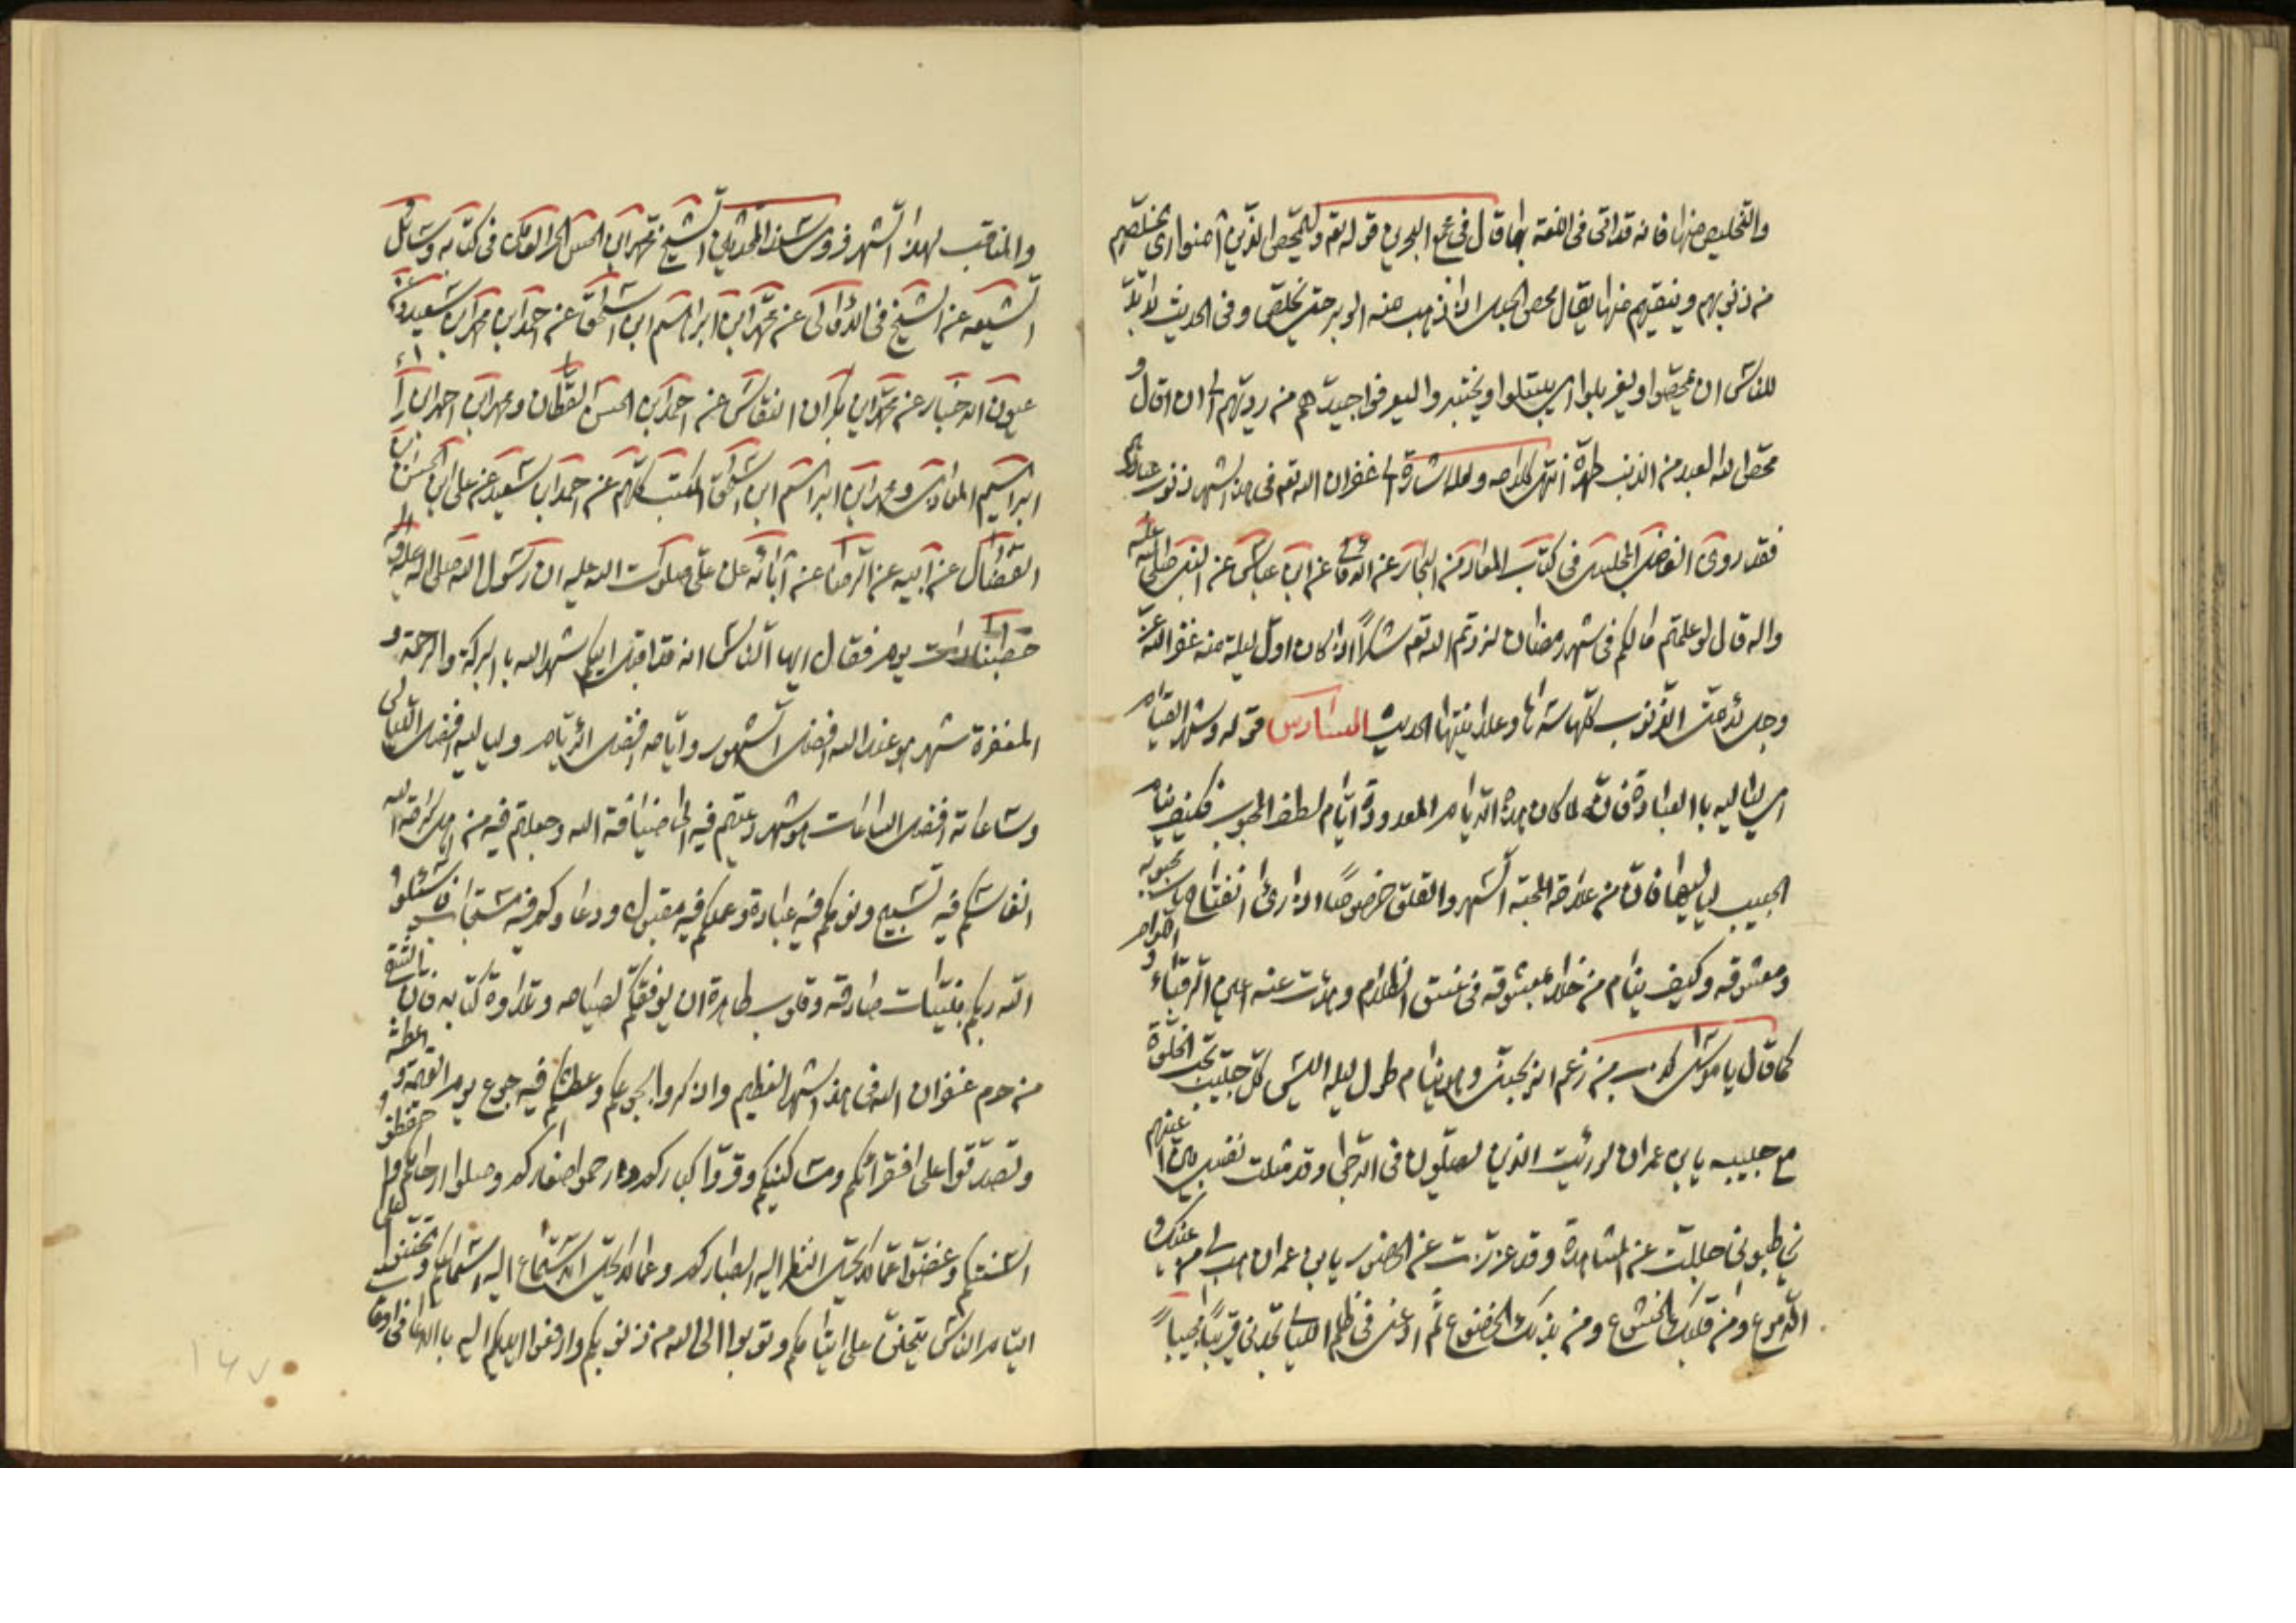 والتخليص منها فانه قد اتى فى اللغة بها قال فى مجمع البحرين قوله تع وليمحص الذين امنوا اى يخلصهم
من ذنوبهم و ينقيهم منها يقال محص الحبل اذا ذهب منه الوبر حتى يخلص و فى الحديث لا بد
للناس ان يمحصوا و يغربلوا اى يبتلوا و يختبروا ليعرفوا جيدهم من رديهم الى ان قال و
محص الله العبد من الذنب طهره انتهى كلامه و لعله اشارة الى غفران الله تعم فى هذا الشهر ذنوب عباده
فقد روى الفاضل المجلسى فى كتاب المعاد من البحار عن ابن عباس عن النبى صلى الله عليه
واله قال لو علمتم ما لكم فى شهر رمضان لزدتم الله تعم شكرا اذا كان اول ليلة منه غفر الله عز
وجل لامتى الذنوب كلها سرها و علانيتها الحديث السادس قوله و شهر القيام
اى لياليه با العبادة فانه لما كان هذه الايام المعدودة ايام لطف المحبوب فكيف ينام
الحبيب لياليها فان من علامة المحبة السهر والقلق خصوصا اذا راى انفتاح باب محبوبه
و معشوقه و كيف ينام من خلا بمعشوقه فى غسق الظلام و هدئت عنه اعين الرقباء و اللوام
كما قال يا موسى كذب من زعم انه يحبنى و هو ينام طول ليله اليس كل حبيب يحب الخلوة
مع حبيبه يابن عمران لو رئيت الذين يصلون فى الدجى و قد مثلت نفسى بين اعينهم
يخاطبونى جللت عن المشاهدة و قد عززت عن الحضور يابن عمران هب لى من عينك
الدموع و من قلبك الخشوع و من بدنك الخضوع ثم ادعنى فى ظلم الليالى تجدنى قريبا مجيبا
والمناقب لهذا الشهر فروى شيخنا المحدثين الشيخ محمد ابن الحسن الحر العاملى فى كتابه وسائل
الشيعه عن الشيخ فى الامالى عن محمد ابن ابراهيم ابن اسحق عن احمد ابن محمد ابن سعيد و فى
عيون الاخبار عن محمد ابن بكران النقاش عن احمد ابن الحسن القطان و محمد ابن احمد ابن
ابراهيم المعاذى و محمد ابن ابراهيم ابن اسحق المكتب كلهم عن احمد ابن سعيد عن على ابن الحسن ابن
الفضال عن ابيه عن الرضا عن ابائه عن على صلوات الله عليه ان رسول الله صلى الله عليه واله
خطبنا ذات يوم فقال ايها الناس انه قد اقبل اليكم شهر الله با البركة والرحمة و
المغفرة شهر هو عند الله افضل الشهور و ايامه افضل الايام و لياليه افضل الليالى
و ساعاته افضل الساعات هو شهر دعيتم فيه الى ضيافة الله وجعلتم فيه من اهل كرامة الله
انفاسكم فيه تسبيح و نومكم فيه عبادة و عملكم فيه مقبول و دعاوكم فيه مستجاب فاسئلوا
الله ربكم بنيات صادقه و قلوب طاهرة ان يوفقكم لصيامه و تلاوة كتابه فان الشقى
من حرم غفران الله فى هذا الشهر العظيم و اذكروا بجوعكم و عطشكم فيه جوع يوم القيمة و عطشه
و تصدقوا على فقرائكم و مساكينكم و وقروا كباركم و ارحموا صغاركم و صلوا ارحامكم و احفظوا
السنتكم و غضوا عما لا يحل النظر اليه ابصاركم و عما لا يحل الاستماع اليه اسماعكم و تحننوا على
ايتام الناس يتحنن على ايتامكم و توبوا الى الله من ذنوبكم و ارفعوا اليه ايديكم با الدعا فى اوقات
١٤٧